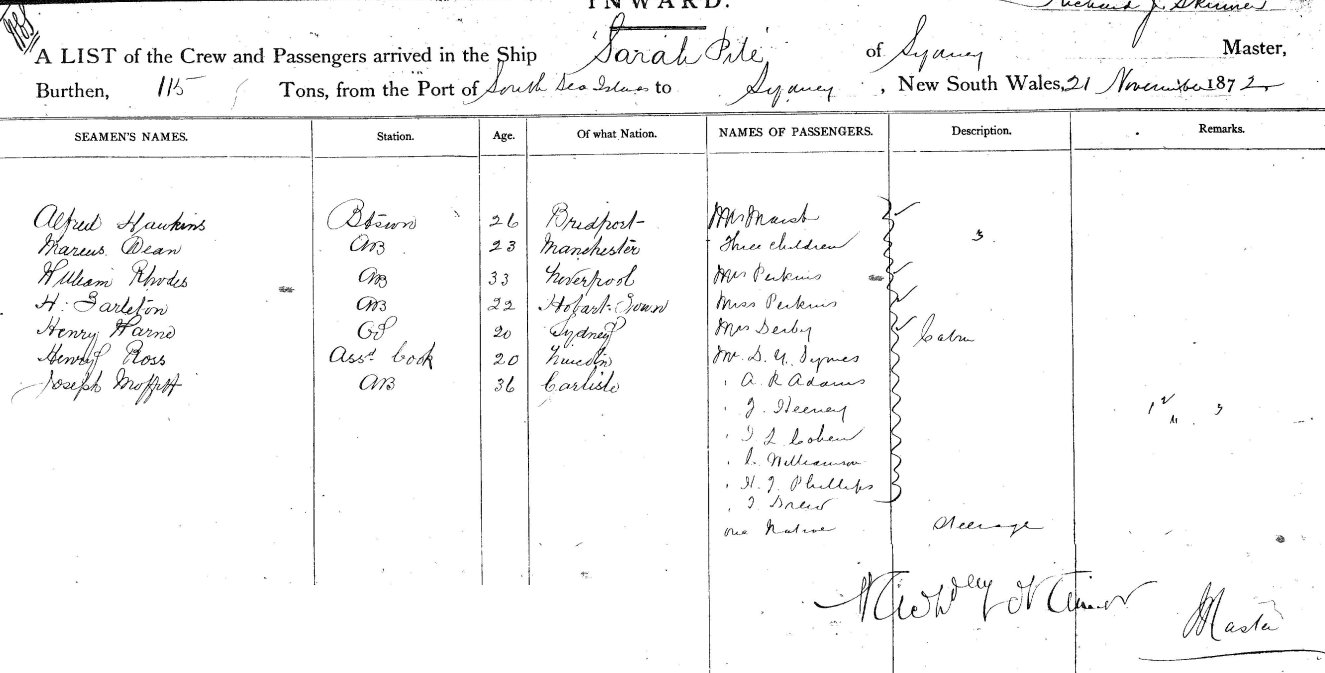 INWARD.
Richard J. Skinner
A LIST of the Crew and Passengers arrived in the Ship Sarah Pile of Sydney Master,
Burthen, 115 Tons, from the Port of South Sea Islands to Sydney, New South Wales, 21 November 1872
SEAMEN'S NAMES. Station. Age. Of what Nation. NAMES OF PASSENGERS. Description. Remarks.
Alfred Hawkins Btswn 26 Bridport Mrs Marsh
Marcus Dean AB 23 Manchester Three children 3
William Rhodes AB 33 Liverpool Mrs Perkins
H. Tarleton AB 22 Hobart Town Miss Perkins
Henry Warne OS 20 Sydney Mrs Derby Cabin
Henry Ross Asst Cook 20 Lincoln Mr. D. Y. Symes
Joseph Moffitt AB 36 Carlisle A R Adams
J. Heeney
Cohen
Williamson
H. J. Phillips
Drew
one Native Steerage
Master